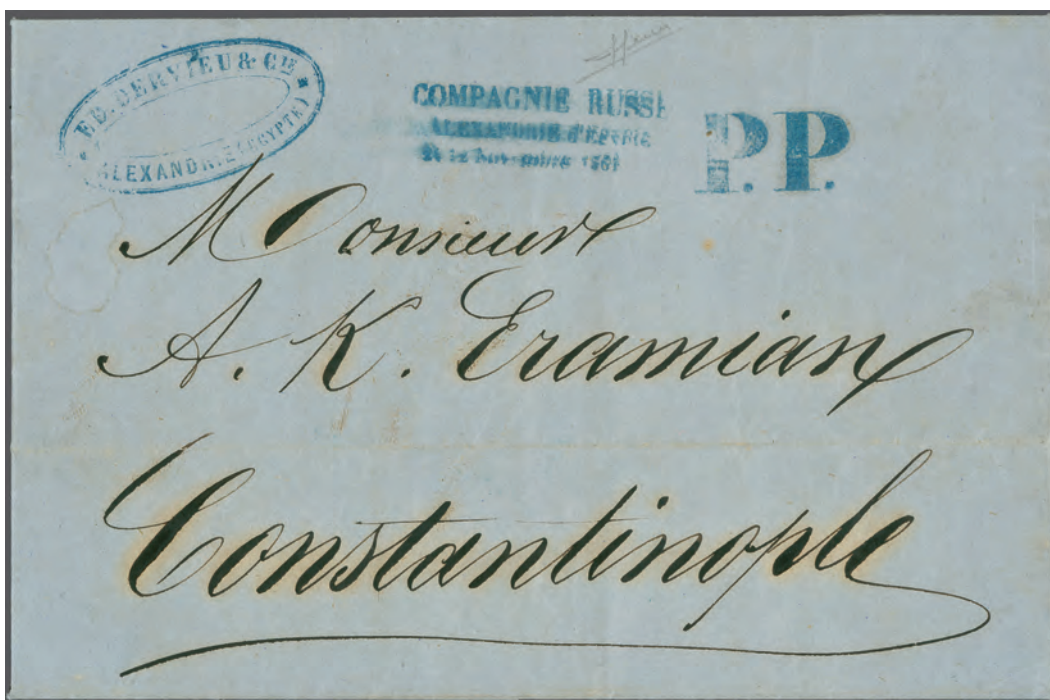 ED. DERVIEU & CIE
ALEXANDRIE (EGYPTE)
COMPAGNIE RUSSE
ALEXANDRIE d'EGYPTE
Novembre 1861
P.P.
Monsieur
A. K. Eramian
Constantinople